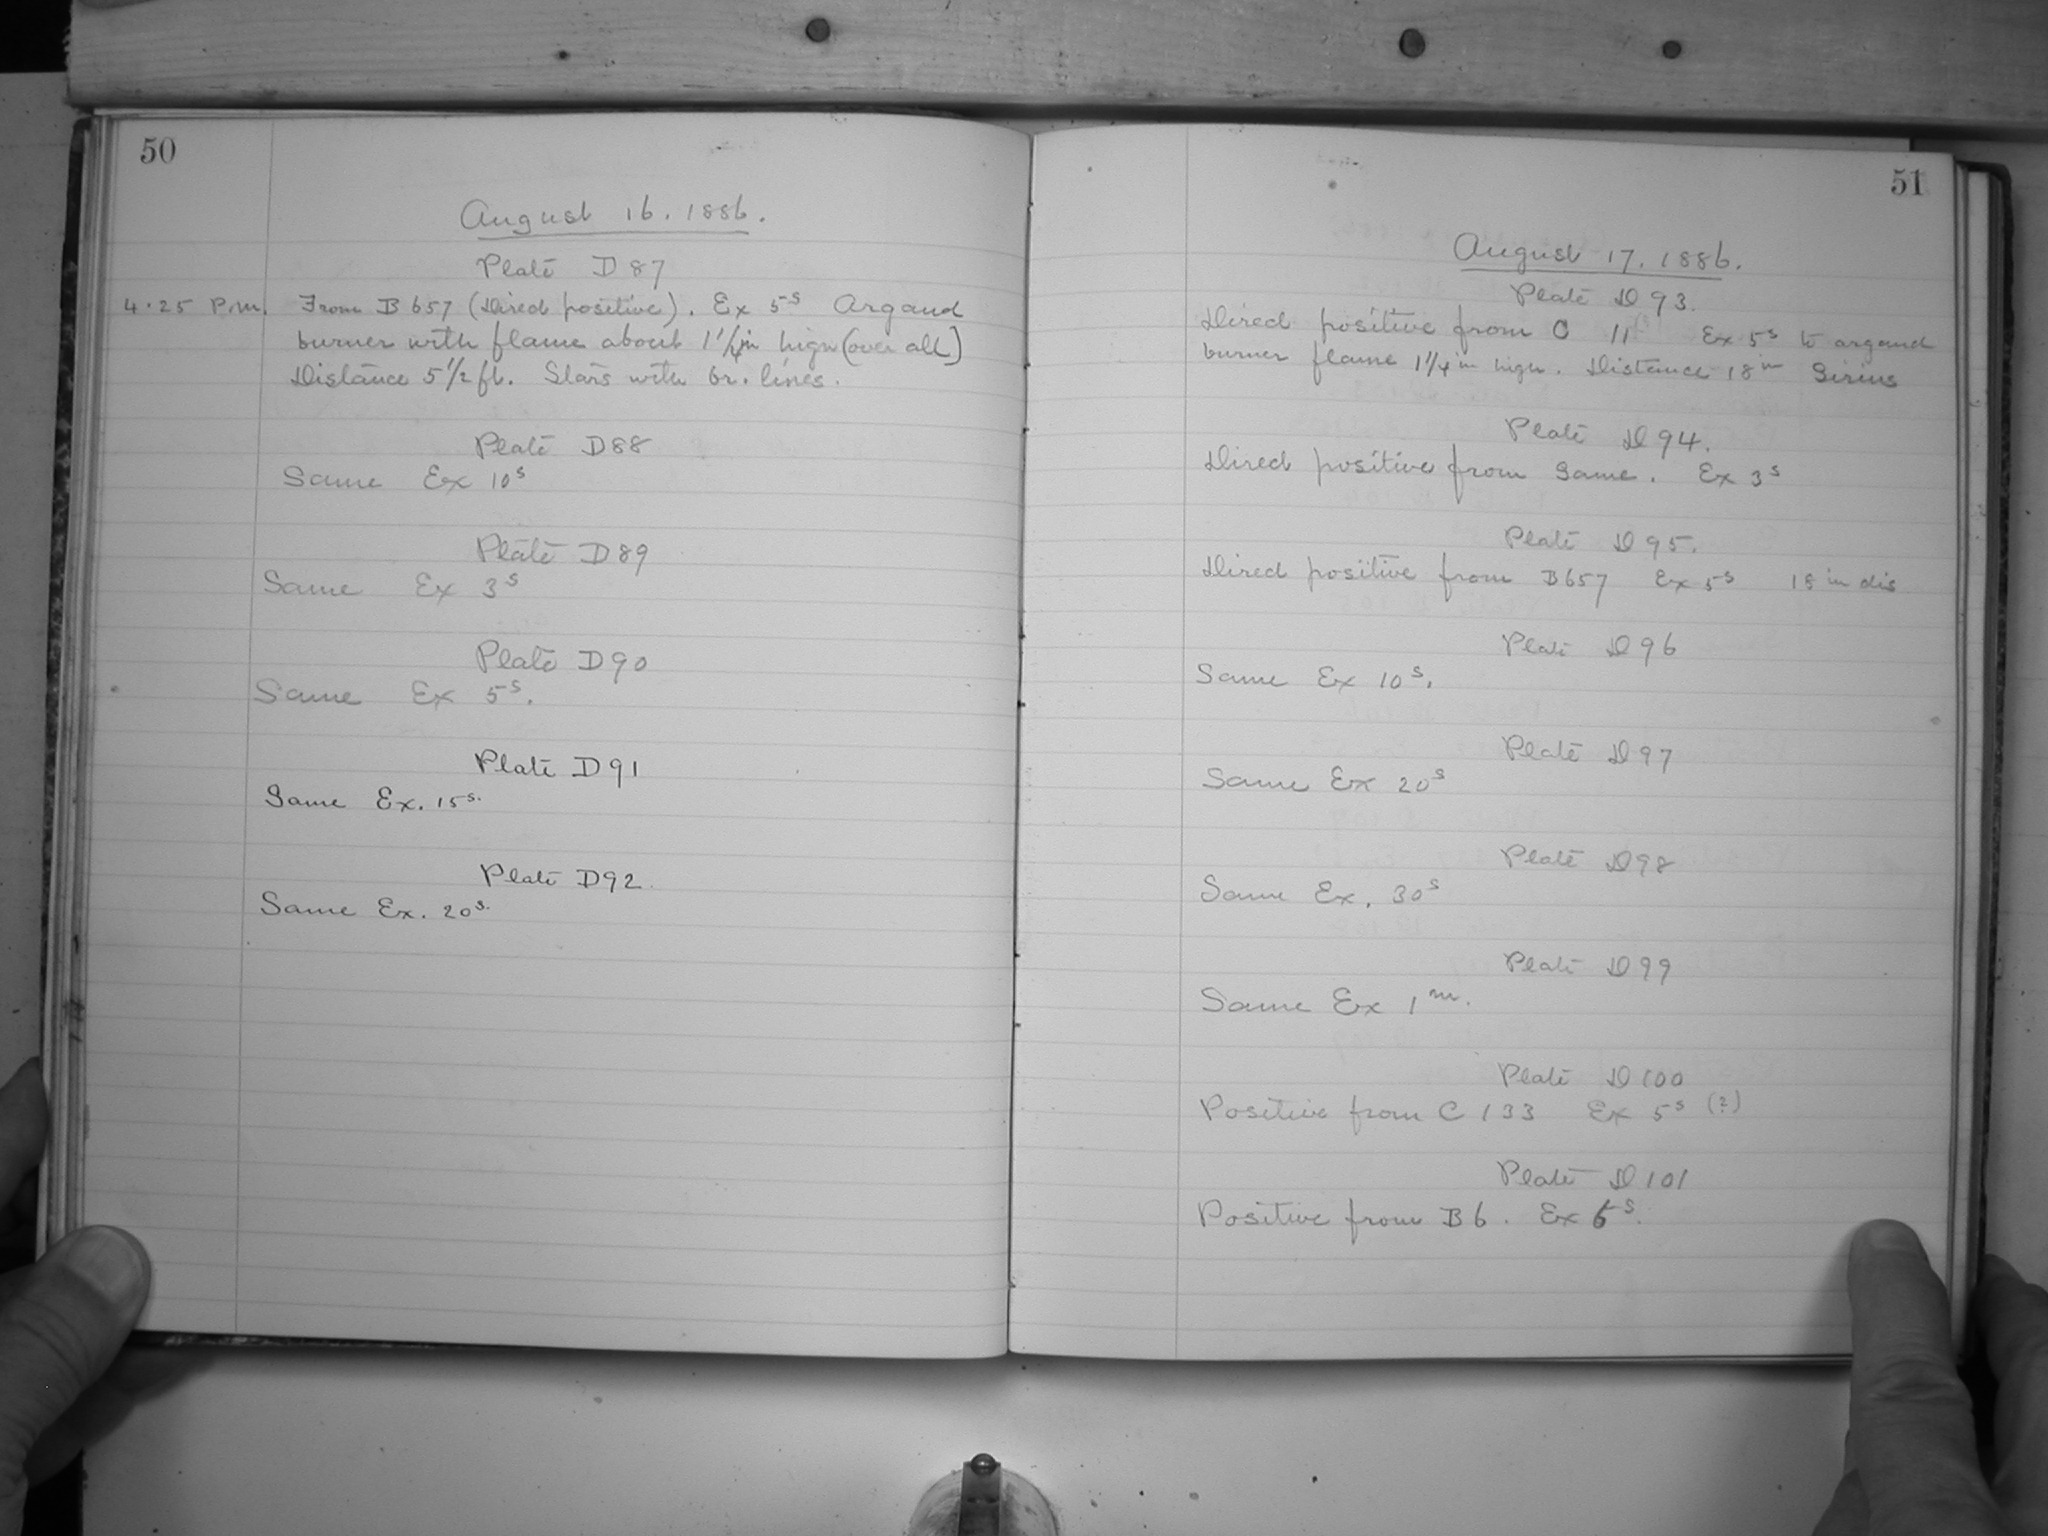 50
August 16. 1886.
Plate D 87
4.25 P.m. From B 657 (Direct positive). Ex 5s Argand
burner with flame about 1 1/4 in high (over all)
Distance 5 1/2 ft. Stars with br. lines.
Plate D88
Same Ex 10s
Plate D89
Same Ex 3s
Plate D90
Same Ex 5s.
Plate D91
Same Ex. 15s.
Plate D92.
Same Ex. 20s.
51
August 17. 1886.
Plate D 93.
Direct positive from C 11 Ex 5s to argand
burner flame 1 1/4 in high. Distance 18 in Sirius
Plate D 94.
Direct positive from Same. Ex 3s
Plate D 95.
Direct positive from B657 Ex 5s 18 in dis
Plate D 96
Same Ex 10s.
Plate D 97
Same Ex 20s
Plate D98
Same Ex. 30s
Plate D 99
Same Ex 1m.
Plate D 100
Positive from C 133 Ex 5s (?)
Plate D 101
Positive from B 6. Ex 5s.